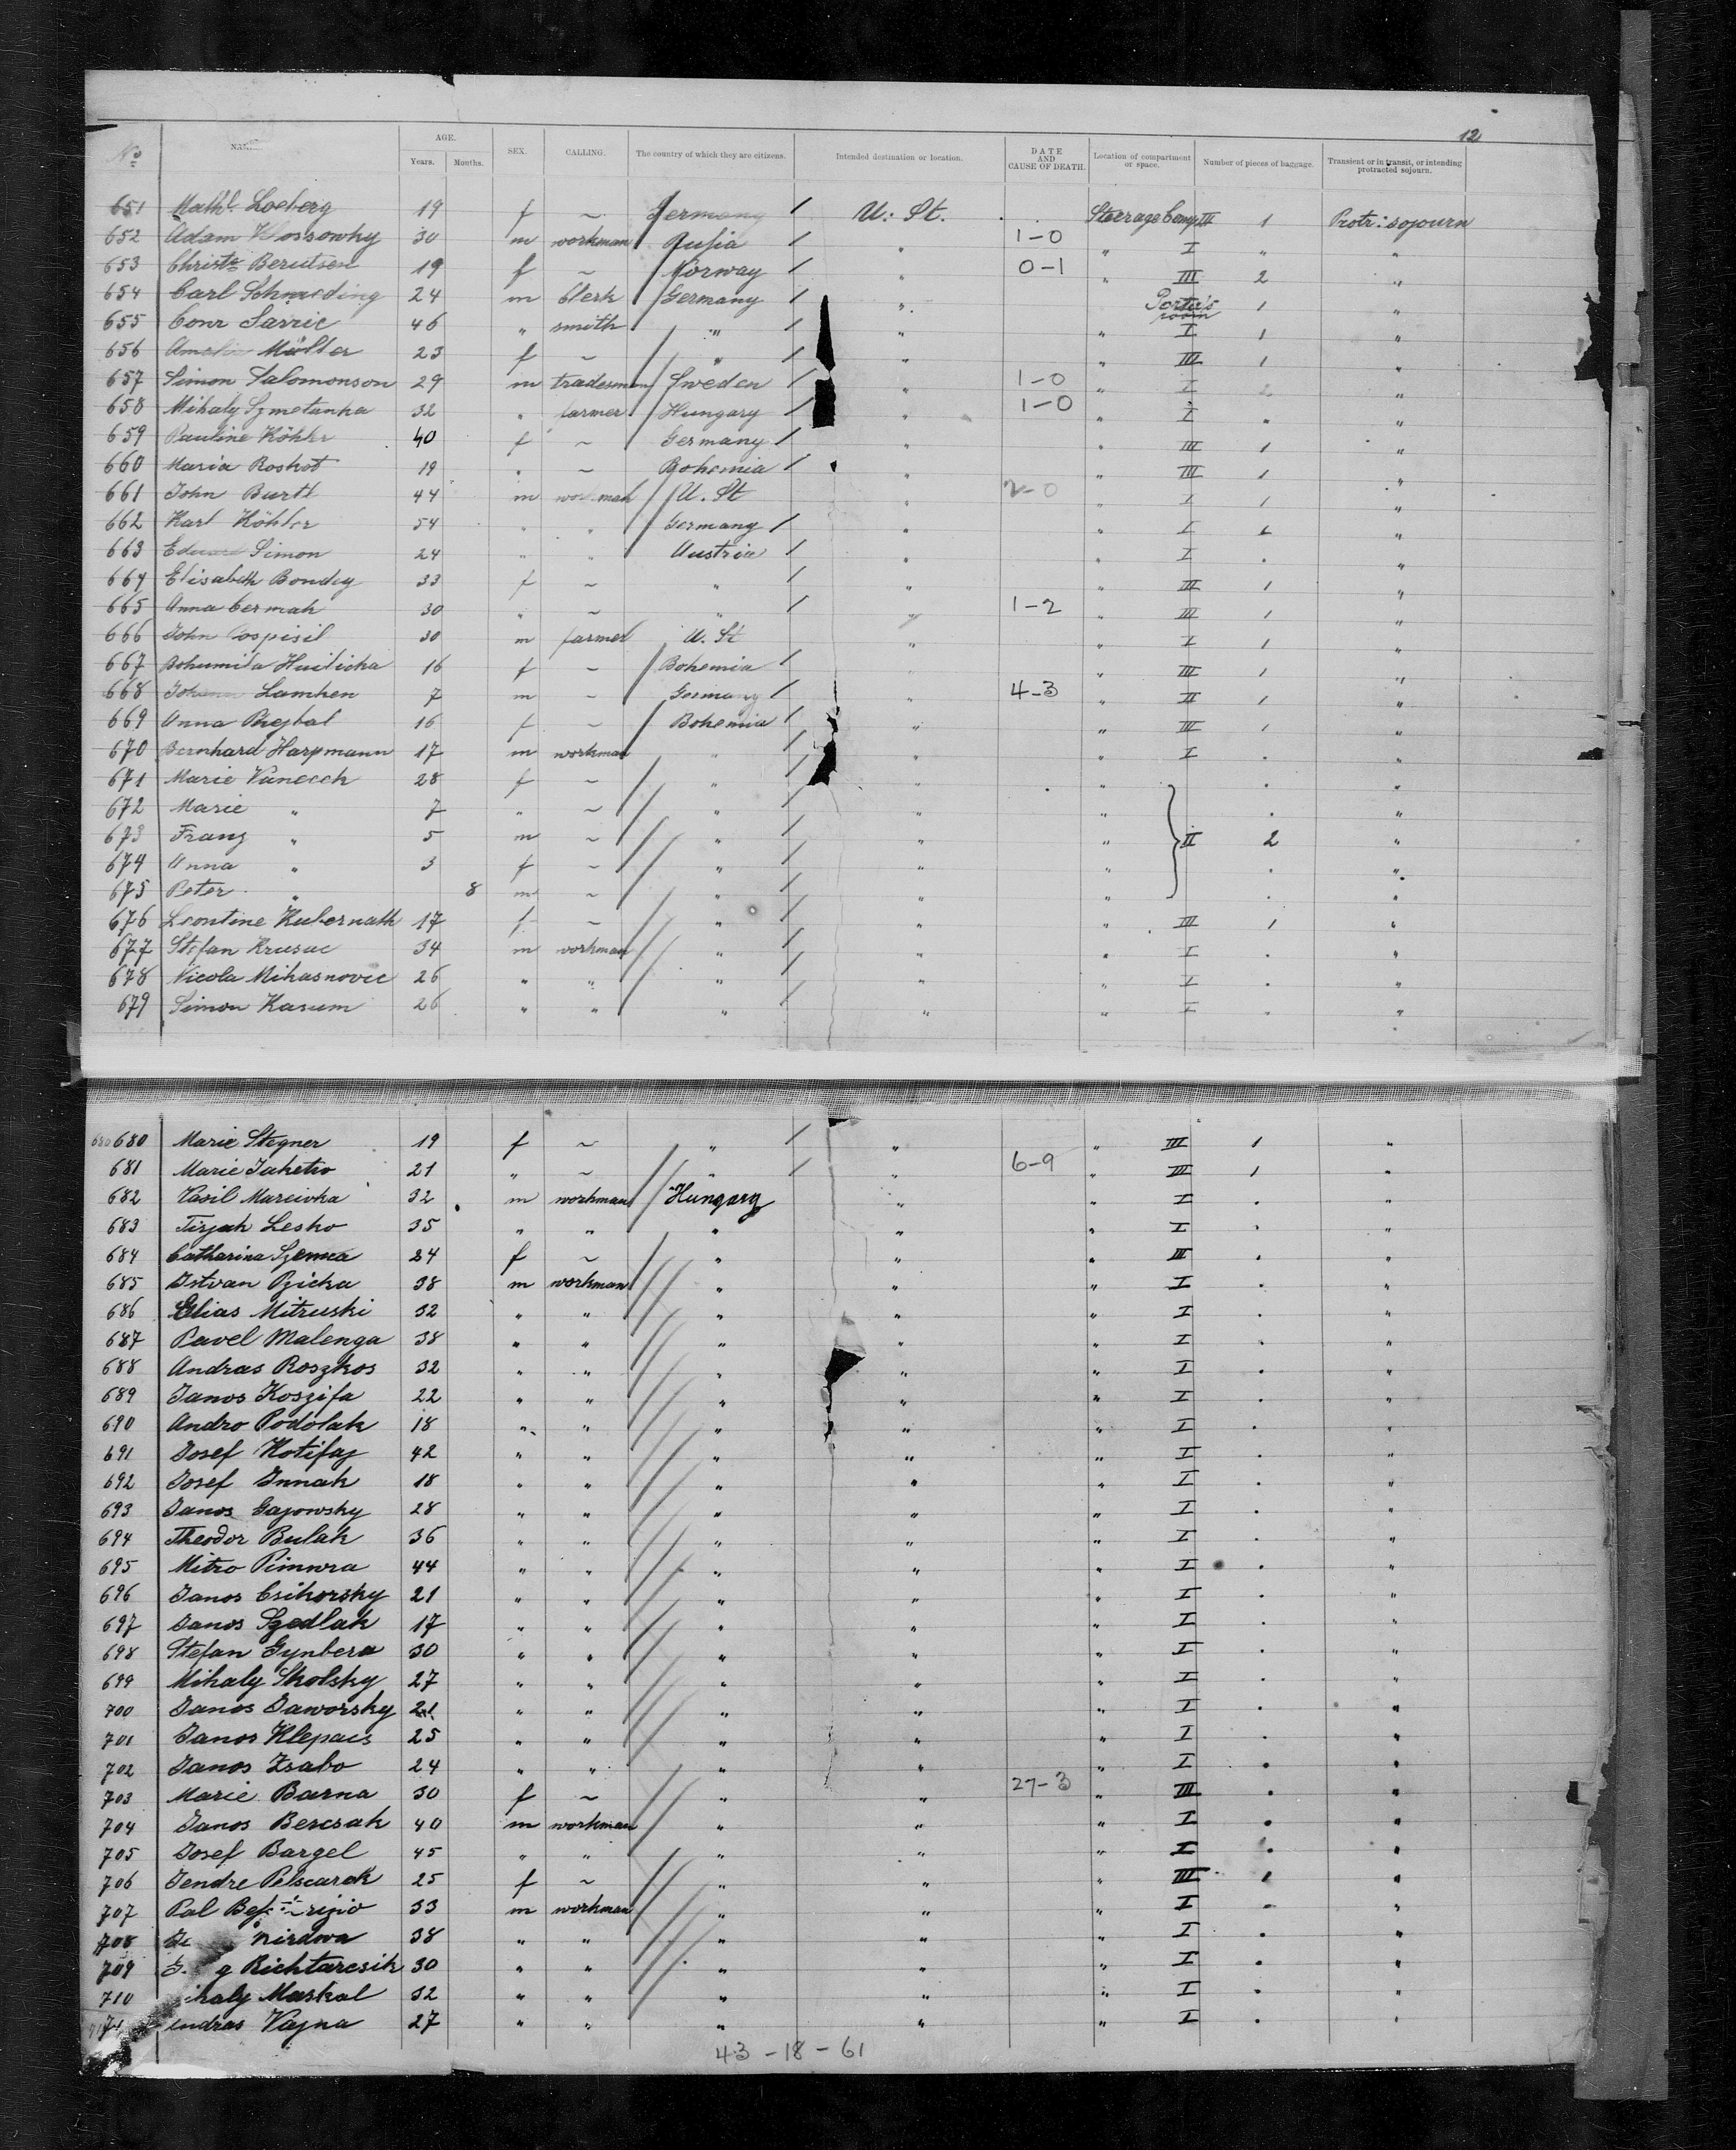 12
No NAME. AGE. Years. Months. SEX. CALLING. The country of which they are citizens. Intended destination or location. DATE AND CAUSE OF DEATH. Location of compartment or space. Number of pieces of baggage. Transient or in transit, or intending protracted sojourn.
651 Loeberg 19 f ~ Germany / U. St. Steerage Comp III 1 Protr: sojourn
652 Adam 30 m workman Rusia / " 1-0 " I " "
653 Berutsen 19 f ~ Norway / " 0-1 " III 2 "
654 Carl 24 m Clerk Germany / " Porter's room 1 "
655 Conr Sarric 46 " smith " / " " I 1 "
656 Müller 23 f ~ " / " " III 1 "
657 Simon Salomonson 29 m tradesman Sweden / " 1-0 " I 2 "
658 Mihaly Szmetanka 32 " farmer Hungary / " 1-0 " I " "
659 Pauline Köhler 40 f ~ Germany / " " III 1 "
660 Maria Roskot 19 " ~ Bohemia / " " III 1 "
661 John Burtl 44 m workman U. St " 2-0 " I 1 "
662 Karl Köhler 54 " " Germany / " " I "
663 Simon 24 " " Austria / " " I . "
664 Elisabeth Bondey 33 f ~ " / " " III 1 "
665 Anna Cermak 30 " ~ " / " 1-2 " III 1 "
666 John Pospisil 30 m farmer U. St " " I 1 "
667 Bohumila 16 f ~ Bohemia / " III 1 "
668 Johann Lamken 7 m ~ Germany / " 4-3 " II 1 "
669 Anna 16 f ~ Bohemia / " " III 1 "
670 Bernhard Harpmann 17 m workman " / " " I . "
671 Marie Vanecek 28 f ~ " / " " . "
672 Marie " 7 " ~ " / " " . "
673 Franz " 5 m ~ " / " " II 2 "
674 Anna " 3 f ~ " / " " . "
675 Peter " 8 m ~ " / " " . "
676 Leontine Kubernath 17 f ~ " / " " III 1 "
677 Stefan Krusac 34 m workman " / " " I . "
678 Nicola Mihasnovic 26 " " " / " " I . "
679 Simon Kasum 26 " " " / " " I " "
680 Marie Stegner 19 f ~ " / " " III 1 "
681 Marie 21 " ~ " / " 6-9 " III 1 "
682 Vasil Mareivka 32 m workman Hungary " " I . "
683 Lesko 35 " " " " " I . "
684 Catharina 24 f ~ " " " III . "
685 Istvan Pzicka 38 m workman " " " I . "
686 Elias Mitruski 32 " " " " " I . "
687 Pavel Malenga 38 " " " " " I . "
688 Andras Roszkos 32 " " " " " I . "
689 Janos Koszifa 22 " " " " " I . "
690 Andro Podolak 18 " " " " " I . "
691 Josef Kotifaj 42 " " " " " I . "
692 Josef Innak 18 " " " " " I . "
693 Janos Gajowsky 28 " " " " " I . "
694 Theodor Bulak 36 " " " " " I . "
695 Mitro 44 " " " " " I . "
696 Janos Csikorsky 21 " " " " " I . "
697 Janos Szedlak 17 " " " " " I . "
698 Stefan Gynbera 30 " " " " " I . "
699 Mihaly Skolsky 27 " " " " " I . "
700 Janos Jaworsky 21 " " " " " I . "
701 Janos Klepacs 25 " " " " " I . "
702 Janos Zsabo 24 " " " " " I . "
703 Marie Barna 30 f ~ " " 27-3 " III . "
704 Janos Bercsak 40 m workman " " " I . "
705 Josef Bargel 45 " " " " " I . "
706 Jendre Pelscarak 25 f ~ " " " III 1 "
707 Pal 33 m workman " " " I . "
708 38 " " " " " I . "
709 Richtarcsik 30 " " " " " I . "
710 Maskal 32 " " " " " I . "
Vajna 27 " " " " " I . "
43 - 18 - 61